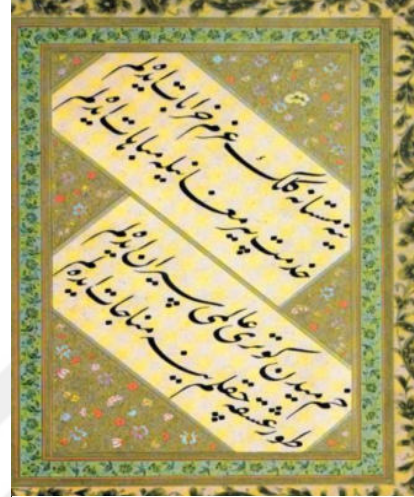 ینه مستانه كلك عزم خرابات ایده‌لم
خدمت پیر مغانیله مباهات ایده‌لم
خم میدن كوتری عالمی سیران ایده‌لم
طور عشقه چقلم ینه مناجات ایده‌لم